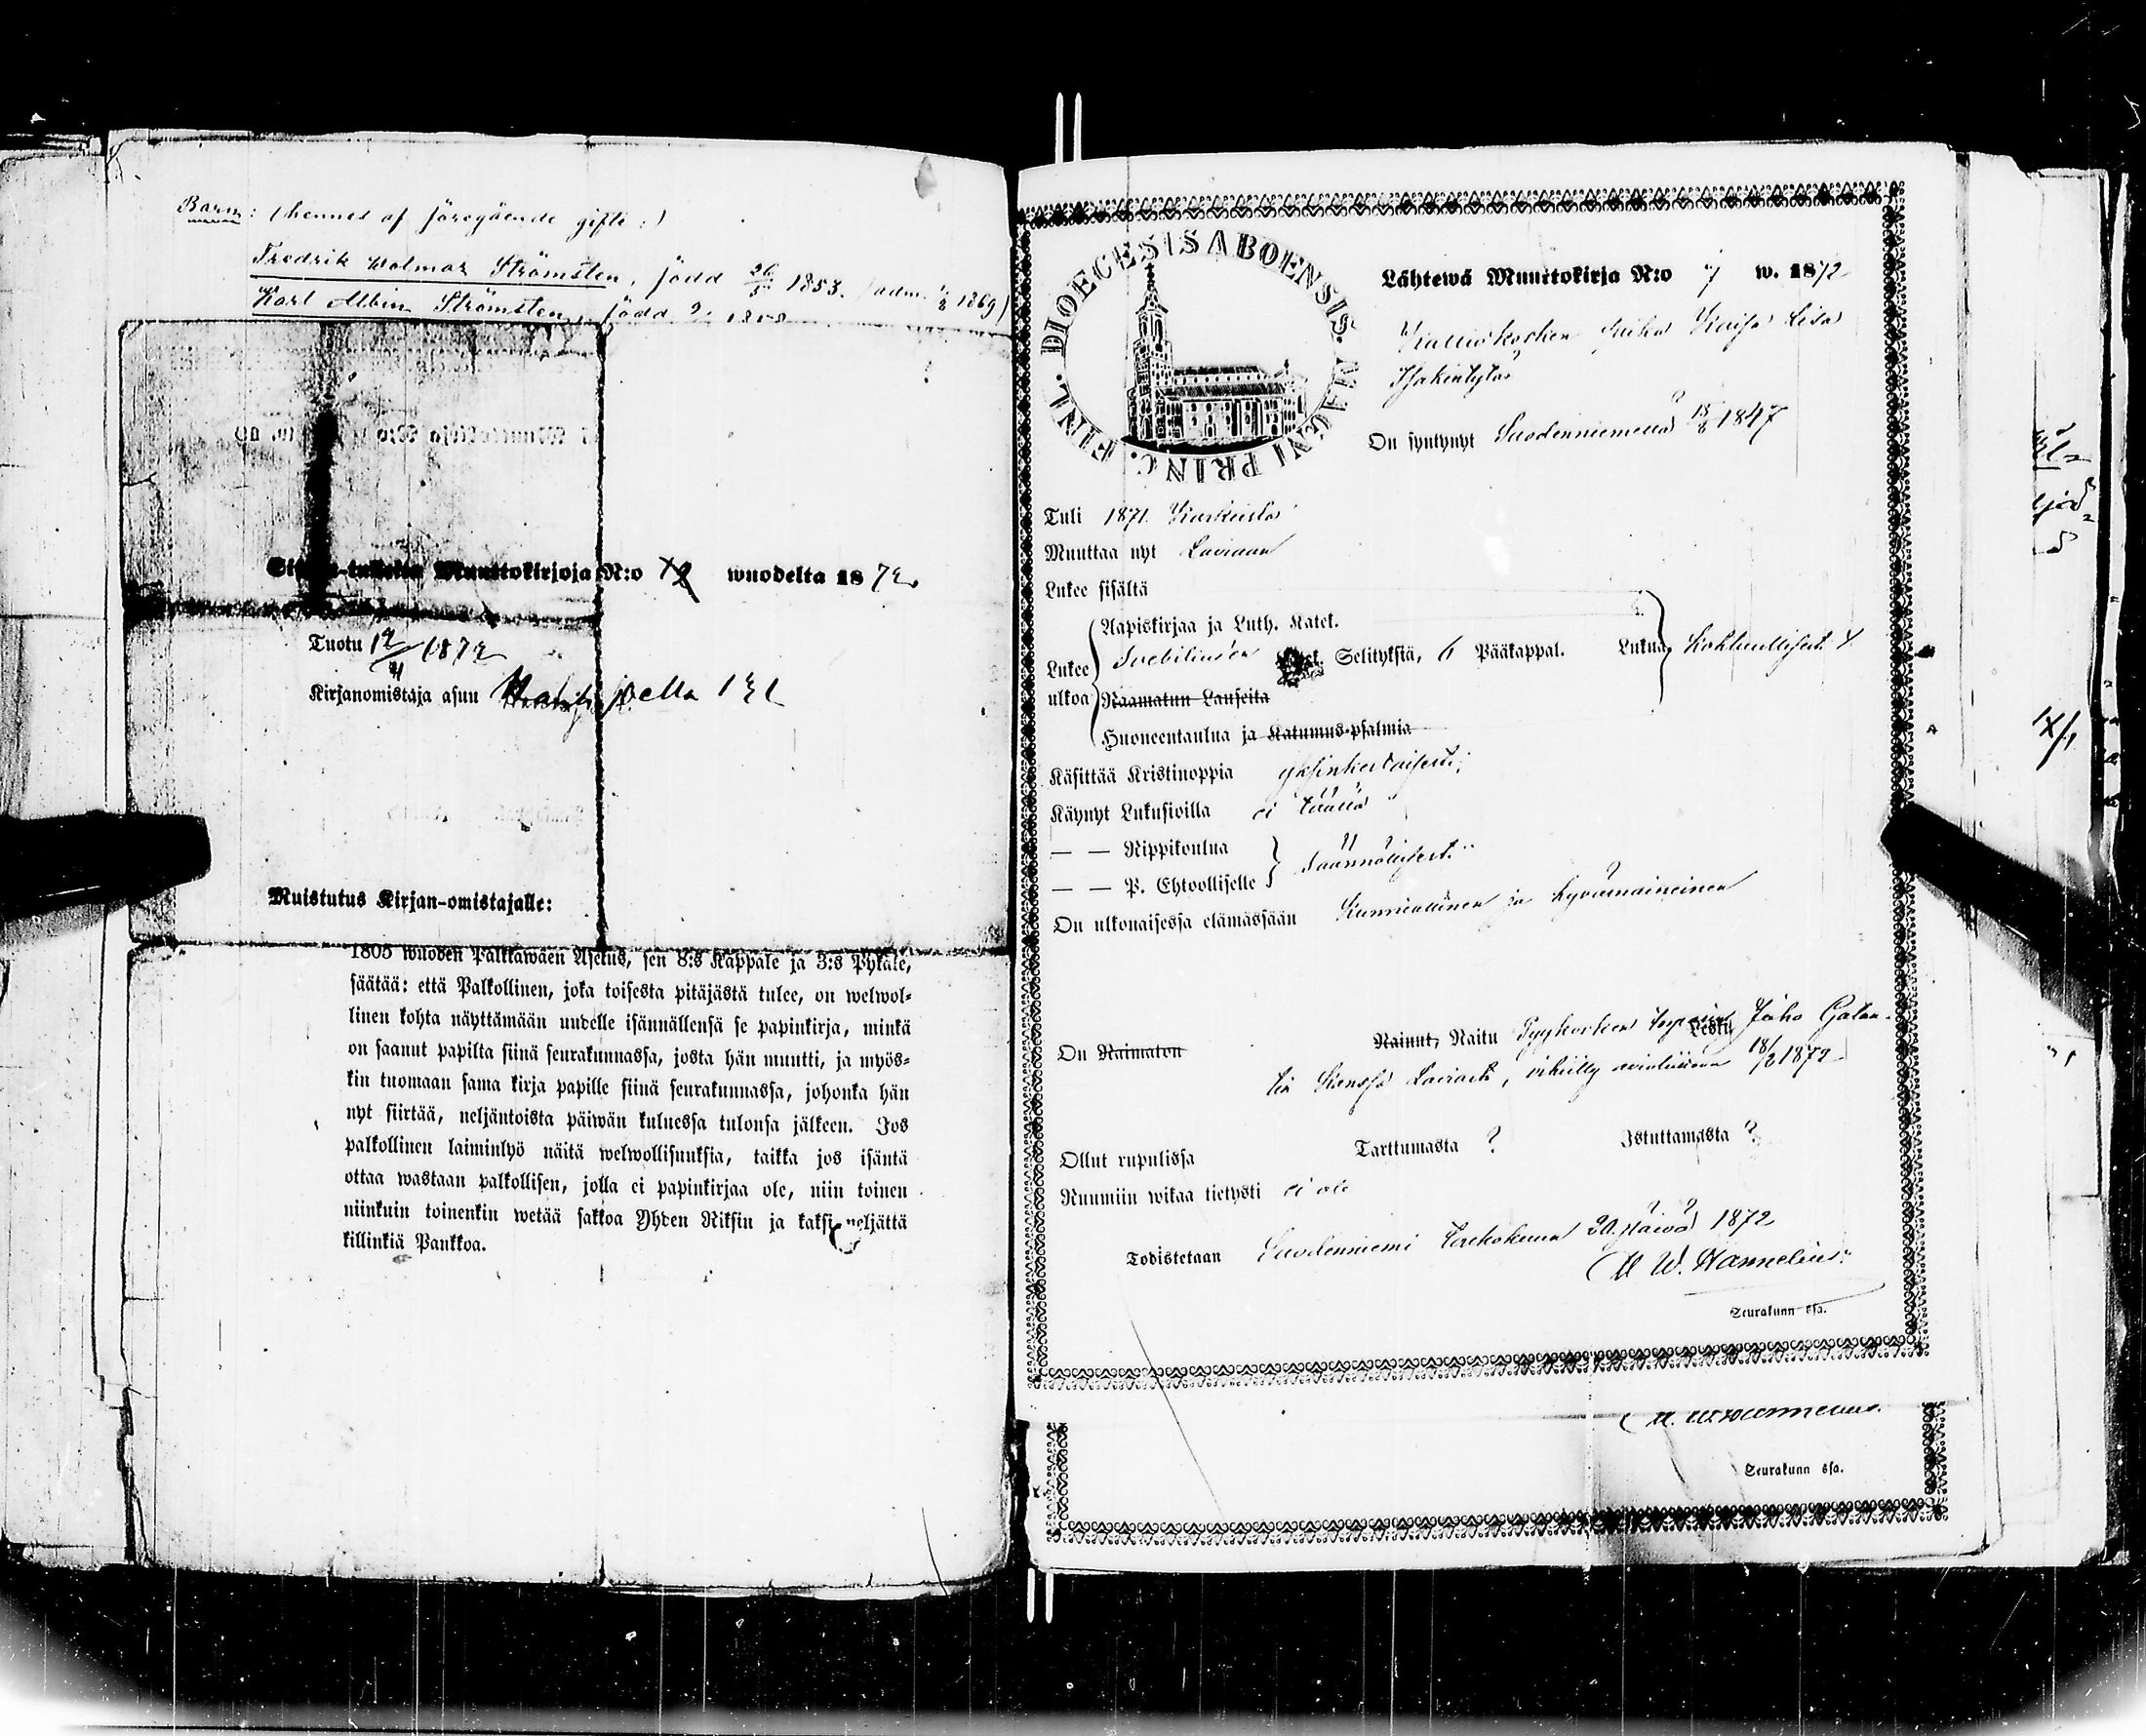 Barn: (hennes af föregående gifte:)
Fredrik Wolmar Strömsten, född 26/5 1853. (adm. 1869)
Karl Albin Strömsten, född
Muuttokirjoja N:o 72 wuodelta 1872.
Tuotu 12/4 1872
Kirjanomistaja asuu
Muistutus Kirjan-omistajalle:
1805 wuoden Palkkawäen Asetus, sen 8:s Kappale ja 3:s Pykälä,
säätää: että Palkollinen, joka toisesta pitäjästä tulee, on welwol-
linen kohta näyttämään uudelle isännällensä se papinkirja, minkä
on saanut papilta siinä seurakunnassa, josta hän muutti, ja myös-
kin tuomaan sama kirja papille siinä seurakunnassa, johonka hän
nyt siirtää, neljäntoista päiwän kuluessa tulonsa jälkeen. Jos
palkollinen laiminlyö näitä welwollisuuksia, taikka jos isäntä
ottaa wastaan palkollisen, jolla ei papinkirjaa ole, niin toinen
niinkuin toinenkin wetää sakkoa Yhden Riksin ja kaksi neljättä
killinkiä Pankkoa.
DIOECESIS ABOENSIS. MAGNI PRINC. FINL.
Lähtewä Muuttokirja N:o 7 w. 1872
Kalliokosken piika Kaisa Lisa
Isakintytär
On syntynyt Suodenniemellä 1847
Tuli 1871 Karkusta
Muuttaa nyt Laviaan
Lukee sisältä
Aapiskirjaa ja Luth. Katek.
Lukee ulkoa Svebiliusen Selityksiä, 6 Pääkappal. Lukua, kohtuullisest.
Raamatun Lauseita
Huoneentaulua ja Katumus-psalmia
Käsittää Kristinoppia yksinkertaisesti;
Käynyt Lukusioilla ei täällä
— — Rippikoulua
— — P. Ehtoolliselle säännöllisest.
On ulkonaisessa elämässään kunniallinen ja hyvämaineinen
On Naimaton Nainut, Naitu Leski Juho
Laviasta, vihitty avioliittoon 18/2 1872
Ollut rupulissa Tarttumasta ? Istuttamasta ?
Ruumiin wikaa tietysti ei ole
Todistetaan Suodenniemi Toukokuun 20. päivä 1872
M W. Hannelius.
Seurakunn ssa.
Seurakunn ssa.